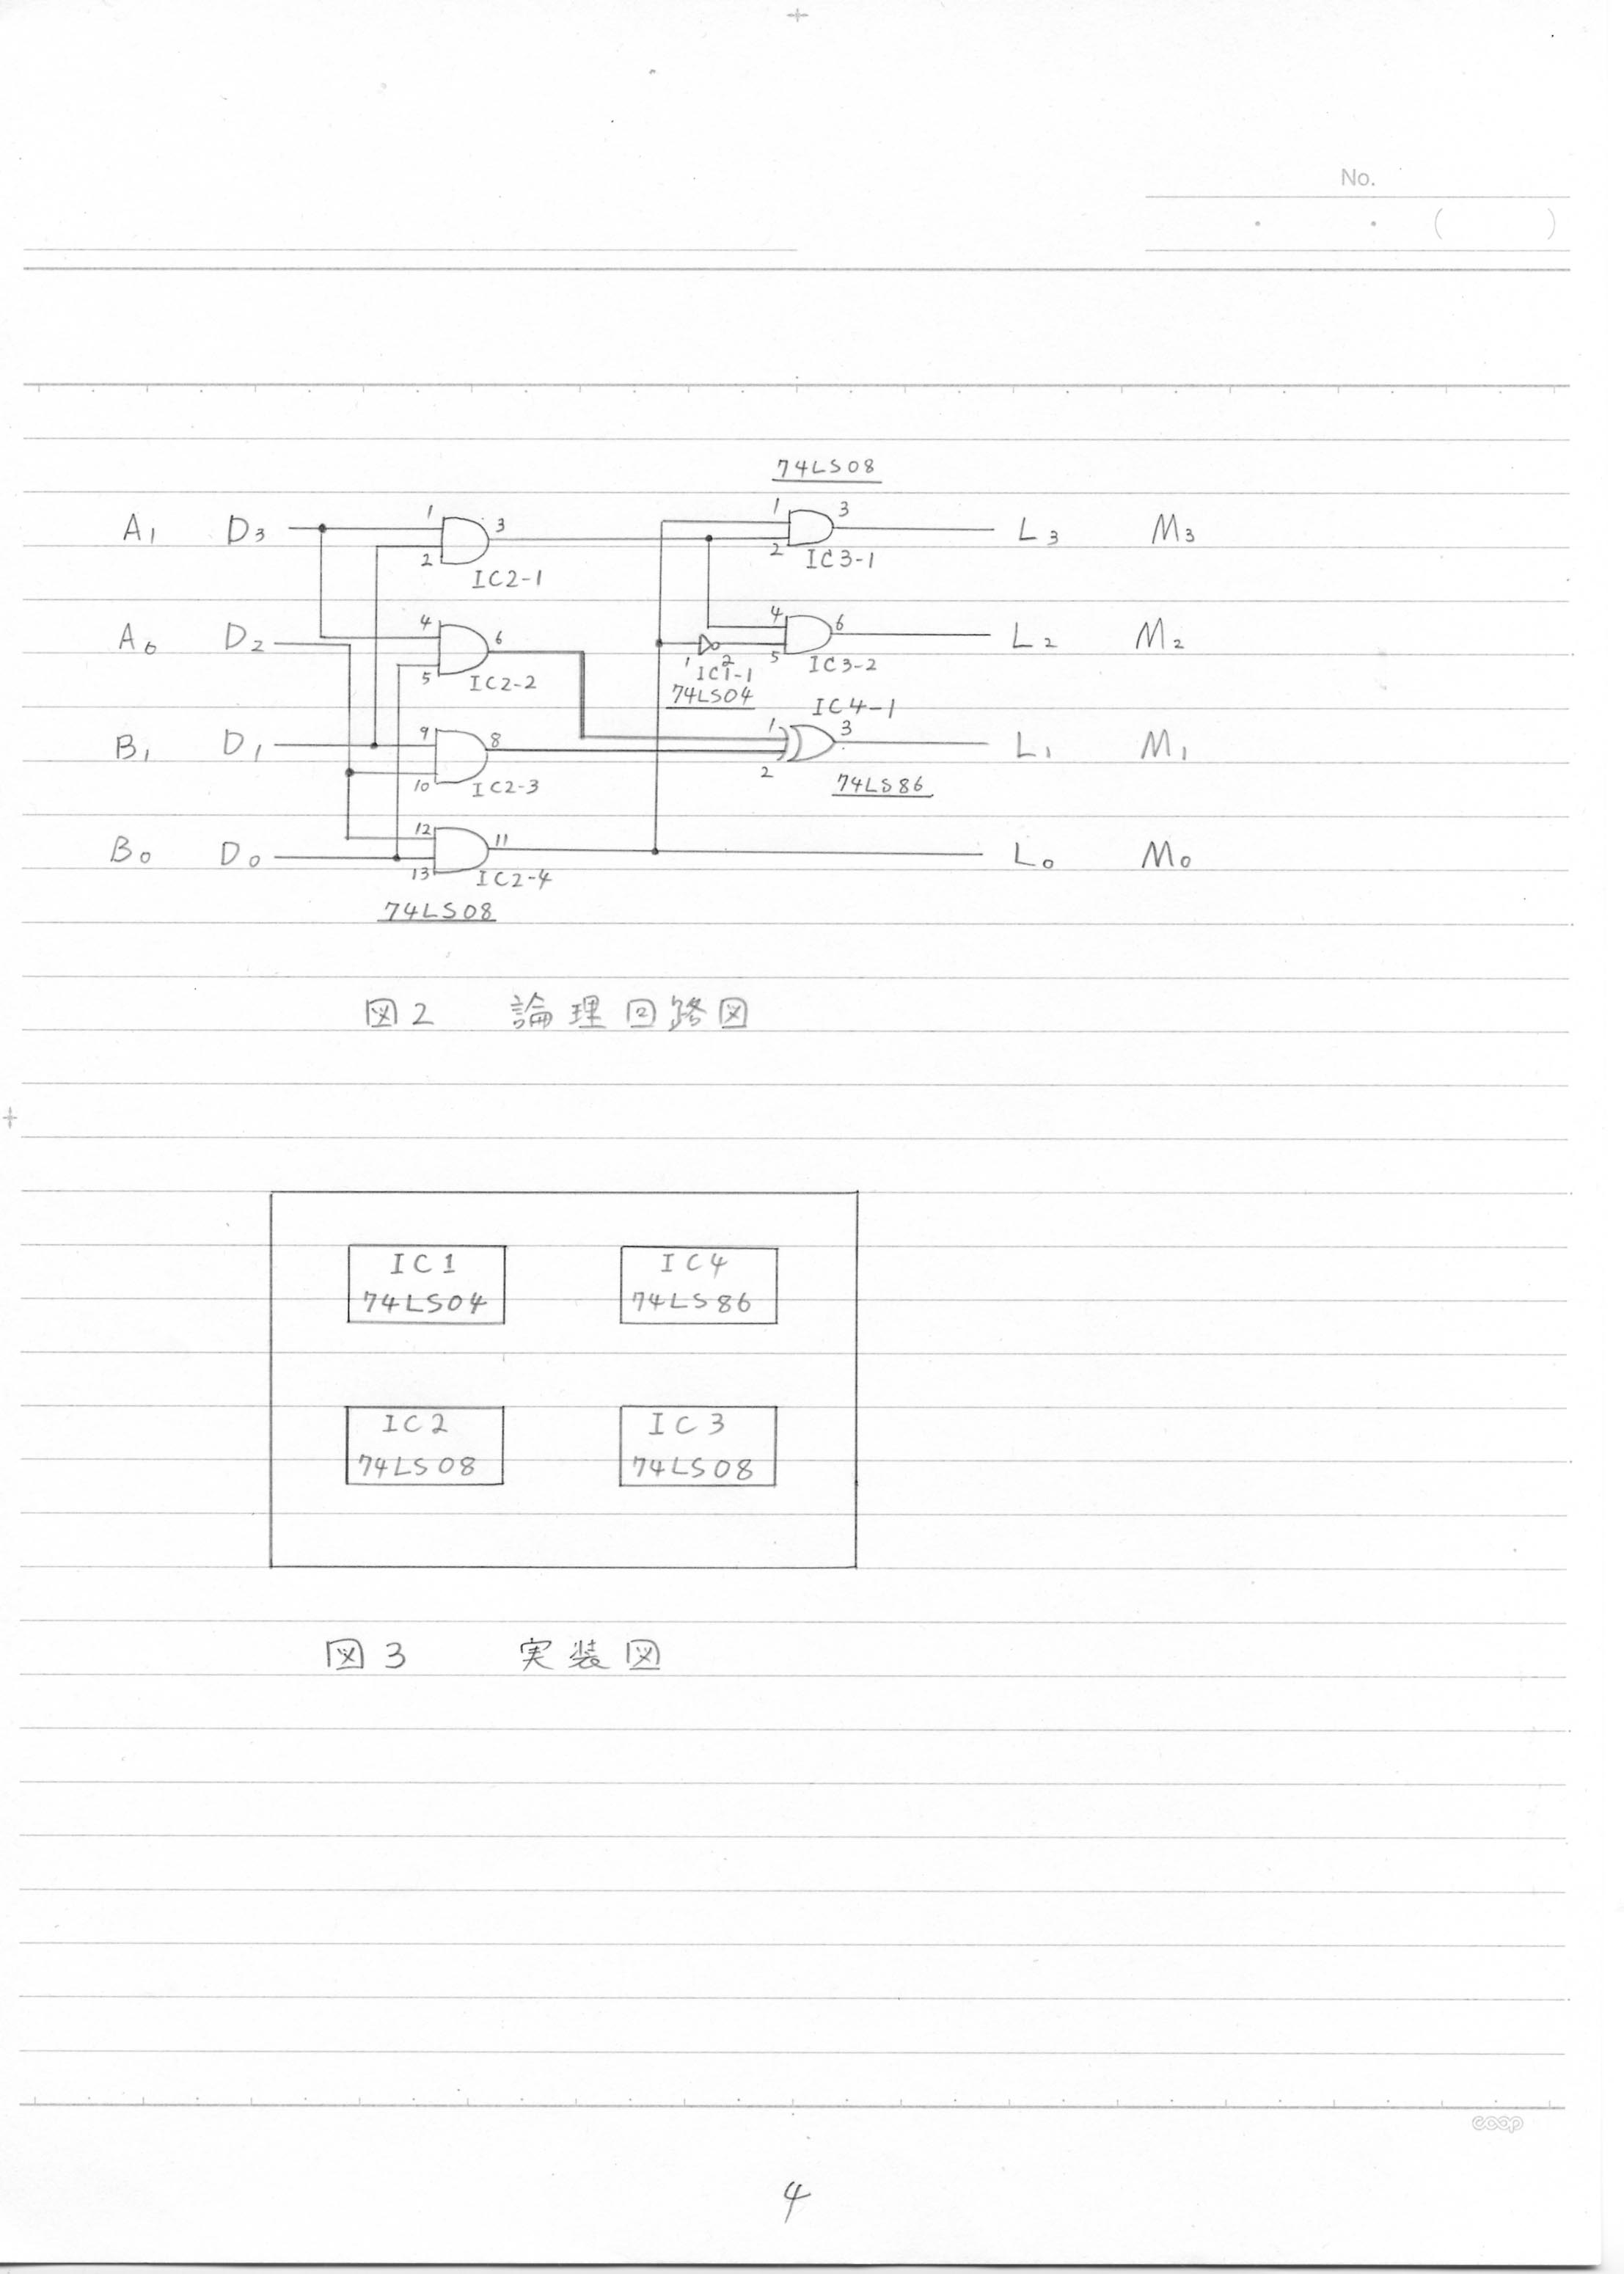 No.
・ ・ ( )
74LS08
A₁ D₃ 1 3 1 3 L₃ M₃
2 IC2-1 2 IC3-1
A₀ D₂ 4 6 4 6 L₂ M₂
5 IC2-2 1 2 IC1-1 5 IC3-2
74LS04
IC4-1
B₁ D₁ 9 8 1 3 L₁ M₁
10 IC2-3 2 74LS86
B₀ D₀ 12 11 L₀ M₀
13 IC2-4
74LS08
図2 論理回路図
IC1 IC4
74LS04 74LS86
IC2 IC3
74LS08 74LS08
図3 実装図
coop
4